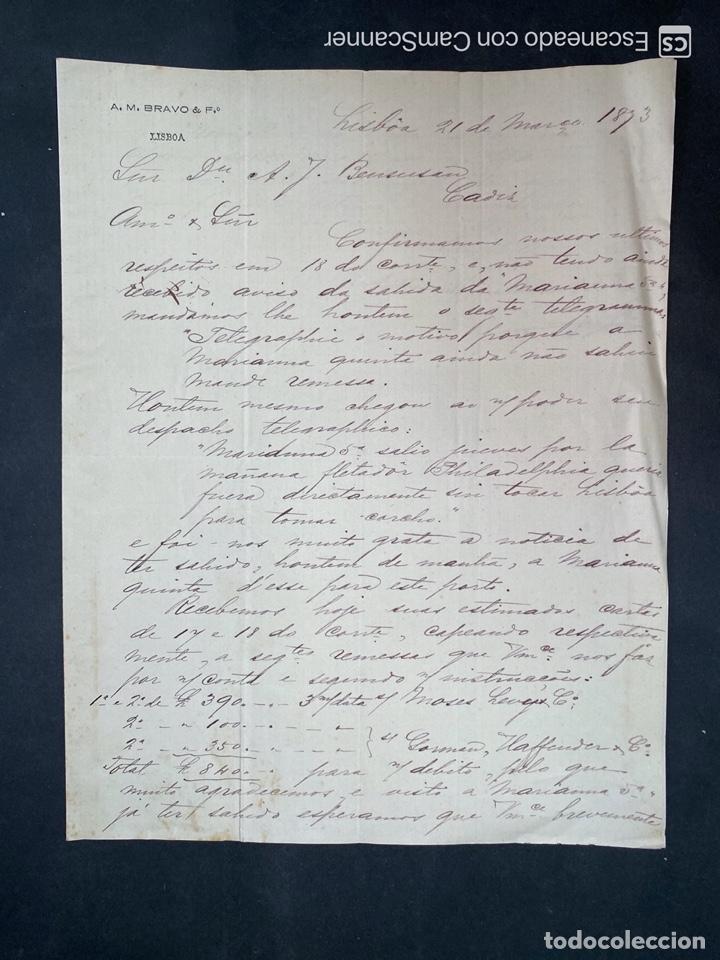 Escaneado con CamScanner
CS
A. M. BRAVO & F.º
LISBOA
Lisbôa 21 de Março 1873
Snr Dn. A. J. Bensusan
Cadiz
Am.º & Snr
Confirmamos nossos ultimos
respeitos em 18 do corrte, e, não tendo ainda
recebido aviso da sahida da "Marianna 5ª"
mandámos lhe hontem o segte telegramma:
"Telegraphie o motivo porque a
Marianna quinta ainda não sahiu
Mande remessa.
Hontem mesmo chegou ao n/ poder seu
despacho telegraphico:
"Marianna 5ª salio jueves por la
mañana fletador Philadelphia queria
fuera directamente sin tocar Lisbôa
para tomar corcho."
e foi-nos muito grata a noticia de
ter sahido, hontem de manhã, a Marianna
quinta d'esse para este porto.
Recebemos hoje suas estimadas cartas
de 17 e 18 do corrte, capeando respectiva
mente, a segtes remessas que Vmce nos faz
por n/ conta e segundo n/ instrucções:
1ª e 2ª de £ 390 - .. - 3 m/data s/ Moses Levy & Cº
2ª - " 100 - .. - " - "
2ª - " 350 - .. - " - " } s/ Gorman, Haffender & Cº
Total £ 840 .. - para n/ debito, pelo que
muito agradecemos e visto a Marianna 5ª
já ter sahido esperamos que Vmce brevemente
todocoleccion